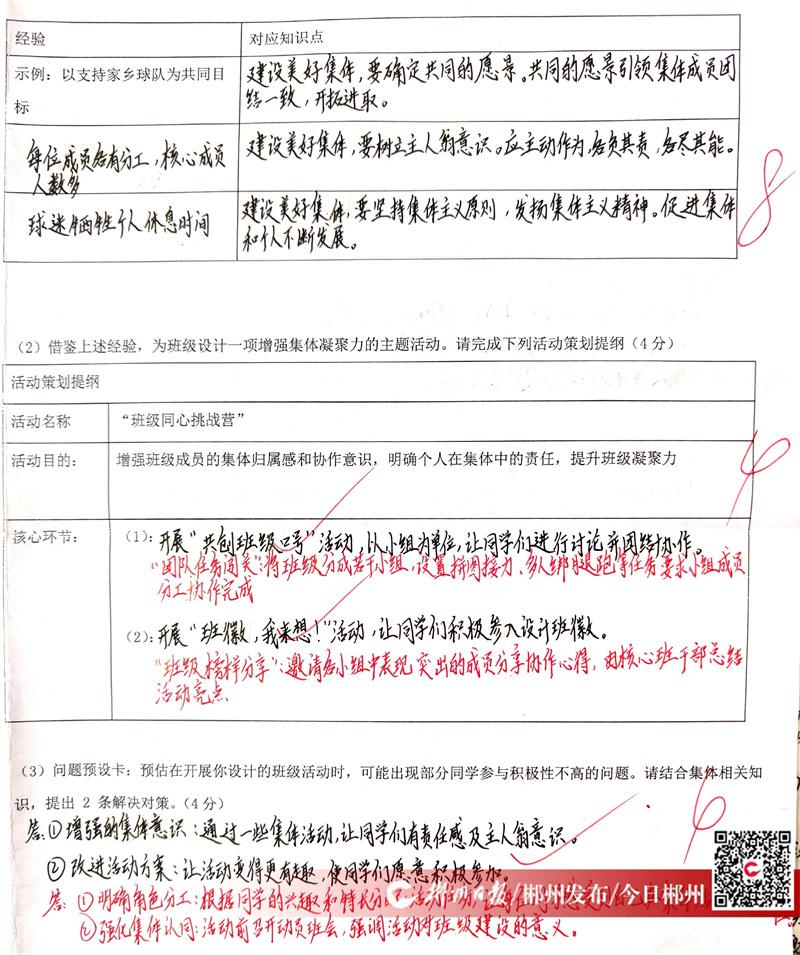 经验 对应知识点
示例：以支持家乡球队为共同目标
建设美好集体，要确定共同的愿景。共同的愿景引领集体成员团
结一致，开拓进取。
每位成员各有分工，核心成员
人数多
建设美好集体，要树立主人翁意识。应主动作为，各负其责，各尽其能。
球迷牺牲个人休息时间
建设美好集体，要坚持集体主义原则，发扬集体主义精神。促进集体
和个人不断发展。
8
（2）借鉴上述经验，为班级设计一项增强集体凝聚力的主题活动。请完成下列活动策划提纲（4分）
活动策划提纲
活动名称 “班级同心挑战营”
活动目的： 增强班级成员的集体归属感和协作意识，明确个人在集体中的责任，提升班级凝聚力
4
核心环节： （1）：开展“共创班级口号”活动，以小组为单位，让同学们进行讨论并团结协作。
“团队任务闯关”：将班级分成若干小组，设置拼图接力、多人绑腿跑等任务要求小组成员
分工协作完成
（2）：开展“班徽，我来想！”活动，让同学们积极参入设计班徽。
“班级榜样分享”：邀请各小组中表现突出的成员分享协作心得，由核心班干部总结
活动亮点
（3）问题预设卡：预估在开展你设计的班级活动时，可能出现部分同学参与积极性不高的问题。请结合集体相关知
识，提出 2 条解决对策。（4分）
答：①增强的集体意识：通过一些集体活动，让同学们有责任感及主人翁意识。
②改进活动方案：让活动变得更有趣，使同学们愿意积极参加。
答：①明确角色分工：根据同学的兴趣和特长分
②强化集体认同：活动前召开动员班会，强调活动对班级建设的意义。
郴州日报/郴州发布/今日郴州